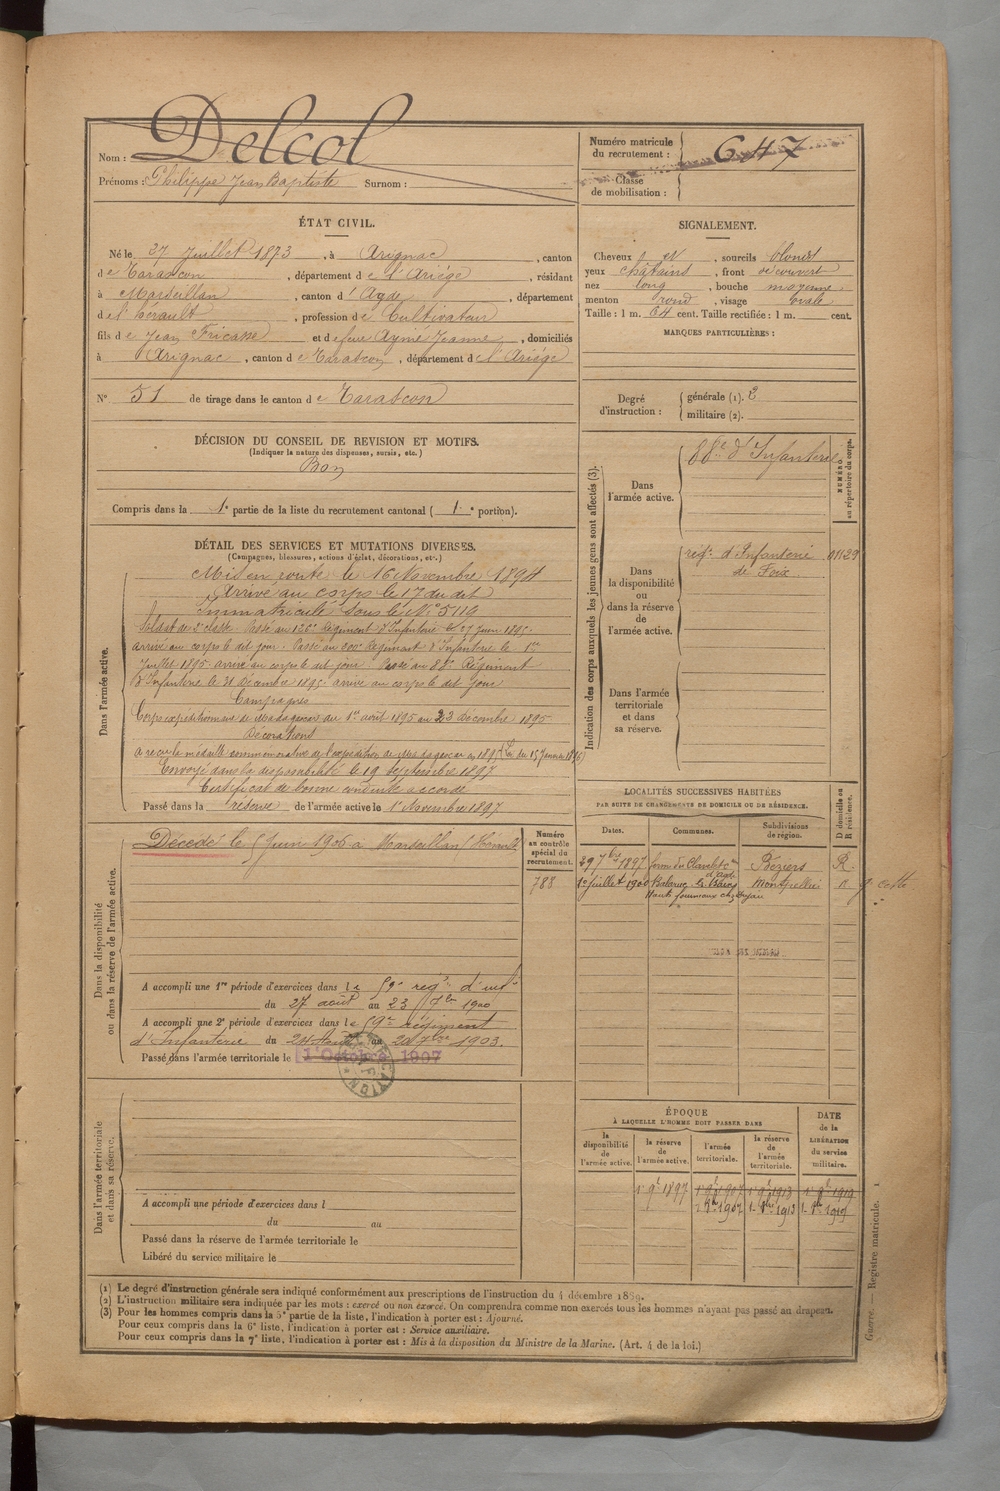 Nom : Delcol
Prénoms : Philippe Jean Baptiste Surnom :
Numéro matricule du recrutement : 647
Classe de mobilisation :
ÉTAT CIVIL.
Né le 27 Juillet 1873, à Arignac, canton
de Tarascon, département de l'Ariège, résidant
à Marseillan, canton d'Agde, département
de l'hérault, profession de Cultivateur
fils de Jean Fricasse et de feue Aymé Jeanne, domiciliés
à Arignac, canton de Tarascon, département de l'Ariège
N° 51 de tirage dans le canton de Tarascon
DÉCISION DU CONSEIL DE REVISION ET MOTIFS.
(Indiquer la nature des dispenses, sursis, etc.)
Bon
Compris dans la 1e partie de la liste du recrutement cantonal (1e portion).
DÉTAIL DES SERVICES ET MUTATIONS DIVERSES.
(Campagnes, blessures, actions d'éclat, décorations, etc.)
Dans l'armée active.
Mis en route le 16 Novembre 1894
Arrivé au corps le 17 du dit
Immatriculé sous le N° 5110
Soldat de 2e classe. Passé au 126e Régiment d'Infanterie le 27 Juin 1895.
arrivé au corps le dit jour. Passé au 200e Régiment d'Infanterie le 1er
Juillet 1895 arrivé au corps le dit jour. Passé au 88e Régiment
d'Infanterie le 31 Décembre 1895 arrivé au corps le dit jour
Campagnes
Corps expéditionnaire de Madagascar du 1er avril 1895 au 23 Décembre 1895
Décorations
a reçu la médaille commémorative de l'expédition de Madagascar en 1895 (Loi du 15 Janvier 1896)
Envoyé dans la disponibilité le 19 septembre 1897
Certificat de bonne conduite accordé
Passé dans la réserve de l'armée active le 1er Novembre 1897
Dans la disponibilité ou dans la réserve de l'armée active.
Décédé le 5 Juin 1906 à Marseillan (Hérault)
Numéro au contrôle spécial du recrutement.
788
A accompli une 1re période d'exercices dans le 59e régt d'inf
du 27 août au 23 7bre 1900
A accompli une 2e période d'exercices dans le 59e régiment
d'Infanterie du 24 Août au 20 7bre 1903.
Passé dans l'armée territoriale le 1er Octobre 1907
Dans l'armée territoriale et dans sa réserve.
A accompli une période d'exercices dans l
du au
Passé dans la réserve de l'armée territoriale le
Libéré du service militaire le
SIGNALEMENT.
Cheveux et, sourcils blonds
yeux châtains, front découvert
nez long, bouche moyenne,
menton rond, visage ovale
Taille : 1 m. 64 cent. Taille rectifiée : 1 m. cent.
MARQUES PARTICULIÈRES :
Degré d'instruction :
générale (1). 2
militaire (2).
Indication des corps auxquels les jeunes gens sont affectés (3).
NUMÉRO au répertoire du corps.
Dans l'armée active.
88e d'Infanterie
Dans la disponibilité ou dans la réserve de l'armée active.
régt d'Infanterie 01129
de Foix
Dans l'armée territoriale et dans sa réserve.
LOCALITÉS SUCCESSIVES HABITÉES
PAR SUITE DE CHANGEMENTS DE DOMICILE OU DE RÉSIDENCE.
D domicile ou R résidence.
Dates. Communes. Subdivisions de région.
29 7bre 1897 Béziers R.
1er juillet 1900 Balaruc les Bains Montpellier R
Hauts fourneaux
ÉPOQUE
À LAQUELLE L'HOMME DOIT PASSER DANS
la disponibilité de l'armée active.
la réserve de l'armée active.
l'armée territoriale.
la réserve de l'armée territoriale.
DATE de la LIBÉRATION du service militaire.
1er 9bre 1897 1er 9bre 1907 1er 9bre 1913 1er 9bre 1919
1er 8bre 1907 1er 8bre 1913 1er 8bre 1919
(1) Le degré d'instruction générale sera indiqué conformément aux prescriptions de l'instruction du 4 décembre 1889.
(2) L'instruction militaire sera indiquée par les mots : exercé ou non exercé. On comprendra comme non exercés tous les hommes n'ayant pas passé au drapeau.
(3) Pour les hommes compris dans la 5e partie de la liste, l'indication à porter est : Ajourné.
Pour ceux compris dans la 6e liste, l'indication à porter est : Service auxiliaire.
Pour ceux compris dans la 7e liste, l'indication à porter est : Mis à la disposition du Ministre de la Marine. (Art. 4 de la loi.)
Guerre. — Registre matricule. 1